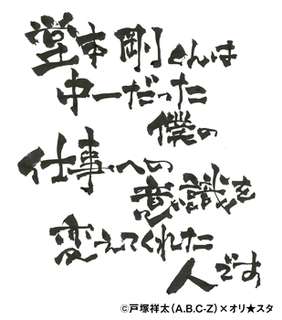 堂本剛くんは
中一だった
僕の
仕事への
意識を
変えてくれた
人です
©戸塚祥太(A.B.C-Z)×オリ★スタ